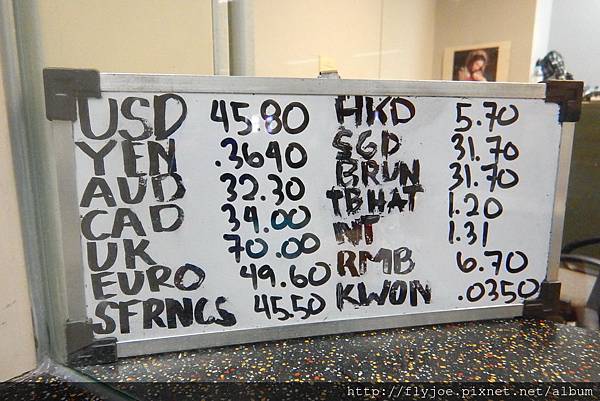 USD 45.80 HKD 5.70
YEN .3640 SGD 31.70
AUD 32.30 BRUN 31.70
CAD 34.00 TBHAT 1.20
UK 70.00 NT 1.31
EURO 49.60 RMB 6.70
SFRNCS 45.50 KWON .0350
http://flyjoe.pixnet.net/album